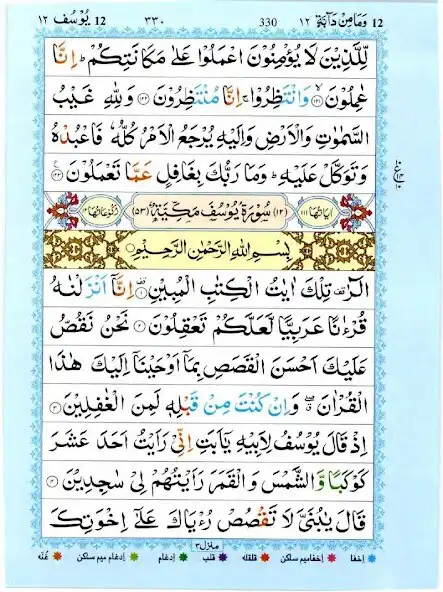 وَمَا مِنْ دَآبَّةٍ ١٢ 12
330
٣٣٠
يُوْسُف ١٢ 12
لِّلَّذِيْنَ لَا يُؤْمِنُوْنَ اعْمَلُوْا عَلٰى مَكَانَتِكُمْ ؕ اِنَّا
عٰمِلُوْنَ ۙ﴿۱۲۱﴾ وَانْتَظِرُوْا ۚ اِنَّا مُنْتَظِرُوْنَ ﴿۱۲۲﴾ وَلِلّٰهِ غَيْبُ
السَّمٰوٰتِ وَالْاَرْضِ وَاِلَيْهِ يُرْجَعُ الْاَمْرُ كُلُّهٗ فَاعْبُدْهُ
وَتَوَكَّلْ عَلَيْهِ ؕ وَمَا رَبُّكَ بِغَافِلٍ عَمَّا تَعْمَلُوْنَ ﴿۱۲۳﴾
اٰيَاتُهَا ١١١ (١٢) سُوْرَةُ يُوْسُفَ مَكِّيَّةٌ (٥٣) رُكُوْعَاتُهَا ١٢
بِسْمِ اللّٰهِ الرَّحْمٰنِ الرَّحِيْمِ
الٓرٰ ۟ تِلْكَ اٰيٰتُ الْكِتٰبِ الْمُبِيْنِ ﴿۱﴾ اِنَّاۤ اَنْزَلْنٰهُ
قُرْءٰنًا عَرَبِيًّا لَّعَلَّكُمْ تَعْقِلُوْنَ ﴿۲﴾ نَحْنُ نَقُصُّ
عَلَيْكَ اَحْسَنَ الْقَصَصِ بِمَاۤ اَوْحَيْنَاۤ اِلَيْكَ هٰذَا
الْقُرْاٰنَ ۖ وَاِنْ كُنْتَ مِنْ قَبْلِهٖ لَمِنَ الْغٰفِلِيْنَ ﴿۳﴾
اِذْ قَالَ يُوْسُفُ لِاَبِيْهِ يٰۤاَبَتِ اِنِّيْ رَاَيْتُ اَحَدَ عَشَرَ
كَوْكَبًا وَّالشَّمْسَ وَالْقَمَرَ رَاَيْتُهُمْ لِيْ سٰجِدِيْنَ ﴿۴﴾
قَالَ يٰبُنَيَّ لَا تَقْصُصْ رُءْيَاكَ عَلٰۤى اِخْوَتِكَ
منزل ٣
اخفا اخفا ميم ساكن قلقله قلب ادغام ادغام ميم ساكن غنه